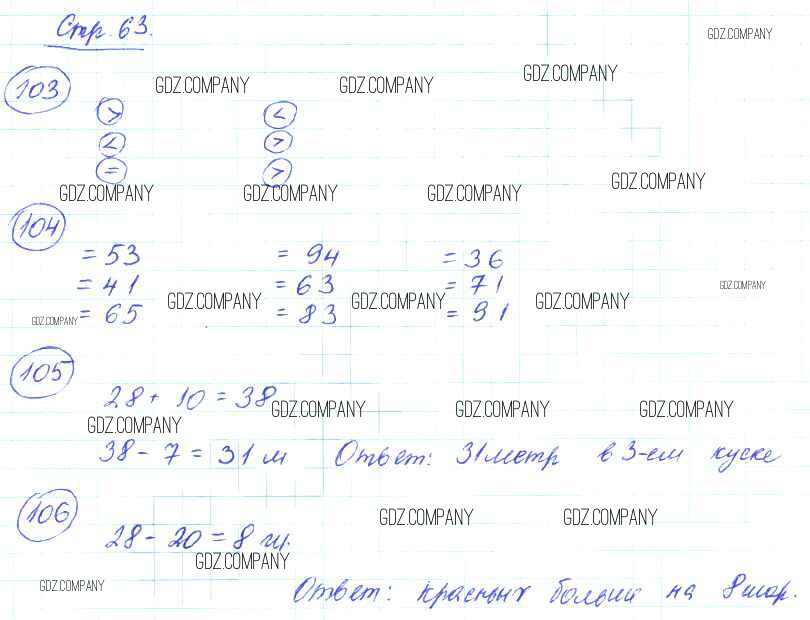 Стр. 63.
GDZ.COMPANY
103 GDZ.COMPANY GDZ.COMPANY GDZ.COMPANY
> <
< >
= >
GDZ.COMPANY GDZ.COMPANY GDZ.COMPANY GDZ.COMPANY
104
= 53 = 94 = 36
= 41 GDZ.COMPANY = 63 GDZ.COMPANY = 71 GDZ.COMPANY GDZ.COMPANY
GDZ.COMPANY = 65 = 83 = 91
105
28 + 10 = 38 GDZ.COMPANY GDZ.COMPANY GDZ.COMPANY
GDZ.COMPANY
38 - 7 = 31 м Ответ: 31 метр в 3-ем куске
106 GDZ.COMPANY GDZ.COMPANY
28 - 20 = 8 ш.
GDZ.COMPANY
GDZ.COMPANY Ответ: красных больше на 8 шар.